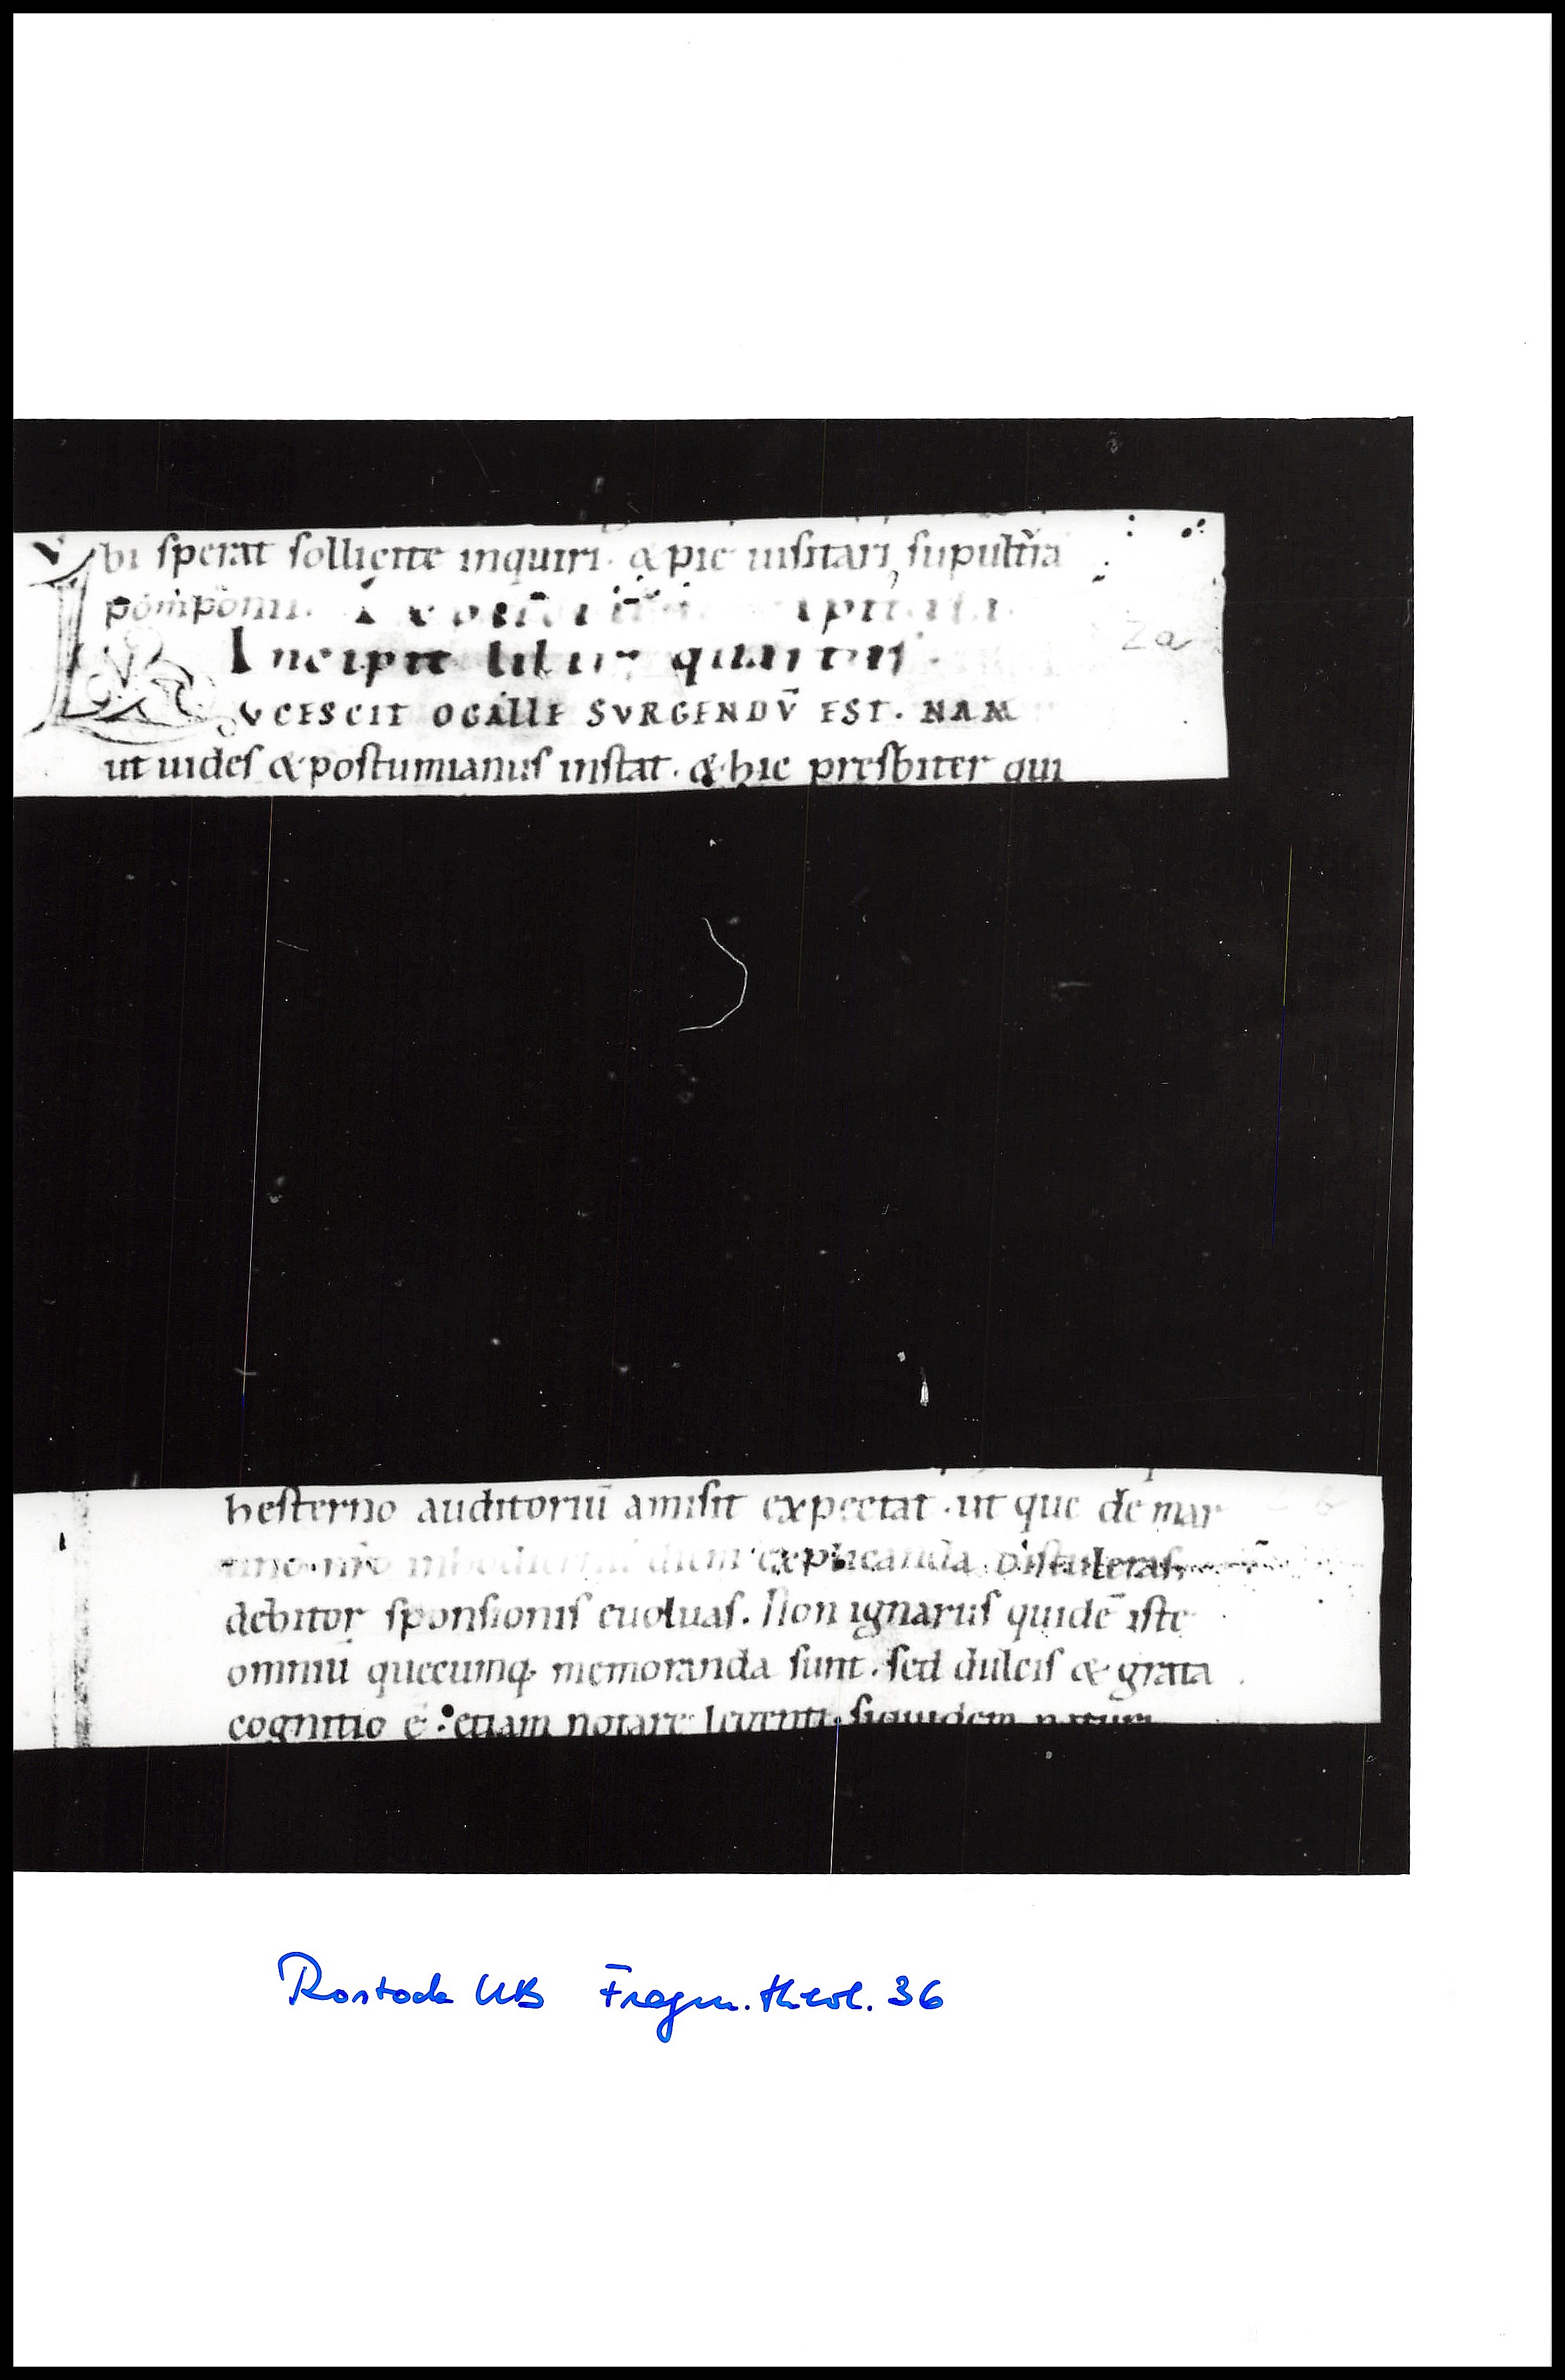 Vbi sperat sollicite inquiri. & pie uisitari, supult̄ra
pomponii.
Incipit liber quartus.
LVCESCIT OGALLE SVRGENDV̄ EST. NAM
ut uides & postumianus instat. & hic presbiter qui
2a
hesterno auditoriū amisit expectat. ut que de mar
tino nr̄o inhodiernū diem explicanda distuleras,
debitor sponsionis euoluas. Non ignarus quidē iste
omniū quecumq; memoranda sunt. sed dulcis & grata
cognitio ē: etiam notare siquidem
Rostock UB Fragm. theol. 36